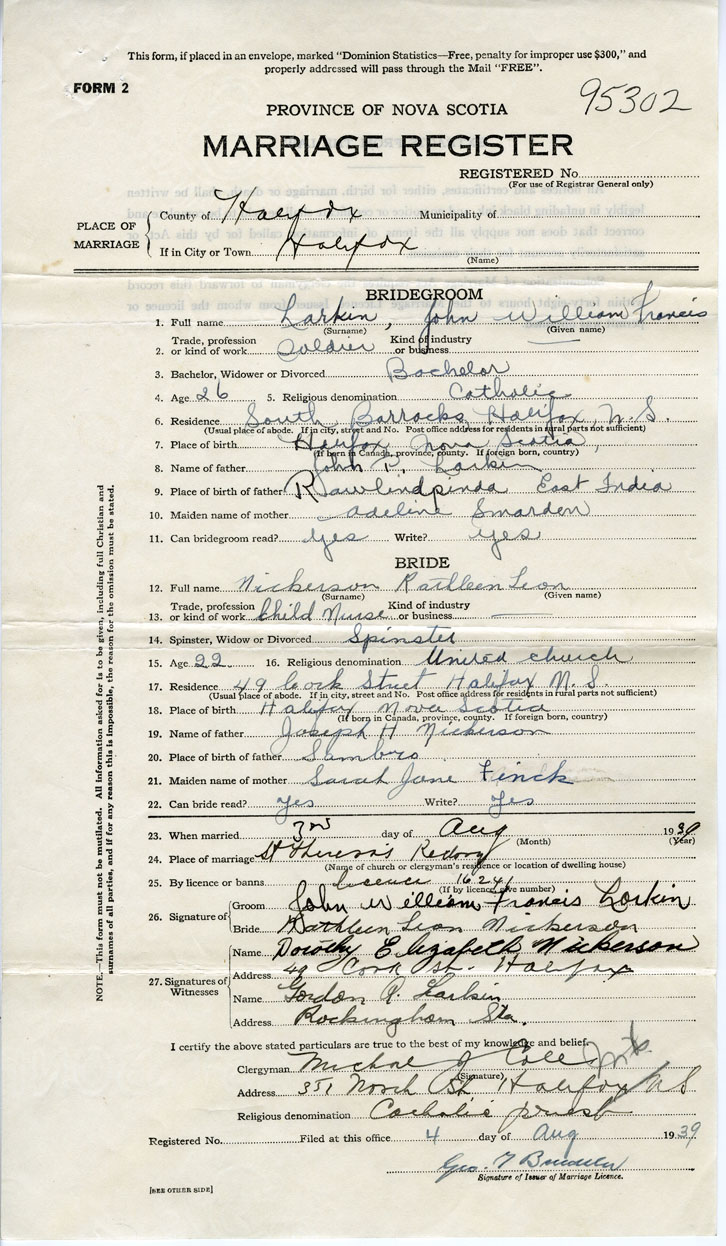 This form, if placed in an envelope, marked "Dominion Statistics—Free, penalty for improper use $300," and
properly addressed will pass through the Mail "FREE".
FORM 2
95302
PROVINCE OF NOVA SCOTIA
MARRIAGE REGISTER
REGISTERED No.
(For use of Registrar General only)
PLACE OF MARRIAGE
County of Halifax Municipality of
If in City or Town Halifax
(Name)
BRIDEGROOM
1. Full name Larkin, John William Francis
(Surname) (Given name)
2. Trade, profession or kind of work Soldier Kind of industry or business —
3. Bachelor, Widower or Divorced Bachelor
4. Age 26 5. Religious denomination Catholic
6. Residence South Barracks Halifax, N.S.
(Usual place of abode. If in city, street and No. Post office address for residents in rural parts not sufficient)
7. Place of birth Halifax Nova Scotia,
(If born in Canada, province, county. If foreign born, country)
8. Name of father John P. Larkin
9. Place of birth of father Rawlindpinda East India
10. Maiden name of mother Adeline Smarden
11. Can bridegroom read? Yes Write? Yes
BRIDE
12. Full name Nickerson Kathleen Leon
(Surname) (Given name)
13. Trade, profession or kind of work Child Nurse Kind of industry or business —
14. Spinster, Widow or Divorced Spinster
15. Age 22 16. Religious denomination United church
17. Residence 49 Cork Street Halifax N.S.
(Usual place of abode. If in city, street and No. Post office address for residents in rural parts not sufficient)
18. Place of birth Halifax Nova Scotia
(If born in Canada, province, county. If foreign born, country)
19. Name of father Joseph H Nickerson
20. Place of birth of father Sambro
21. Maiden name of mother Sarah Jane Finck
22. Can bride read? Yes Write? Yes
23. When married 3rd day of Aug 1939
(Month) (Year)
24. Place of marriage St Theresa's Rectory
(Name of church or clergyman's residence or location of dwelling house)
25. By licence or banns licence 1624
(If by licence, give number)
26. Signature of
Groom John William Francis Larkin
Bride Kathleen Leon Nickerson
27. Signatures of Witnesses
Name Dorothy Elizabeth Nickerson
Address 49 Cork St. Halifax
Name Gordon R. Larkin
Address Rockingham Sta.
I certify the above stated particulars are true to the best of my knowledge and belief.
Clergyman Michael J Cole
(Signature)
Address 351 North St Halifax N S
Religious denomination Catholic priest
Registered No. Filed at this office 4 day of Aug 1939
Geo. T
Signature of Issuer of Marriage Licence.
[SEE OTHER SIDE]
NOTE.—This form must not be mutilated. All information asked for is to be given, including full Christian and
surnames of all parties, and if for any reason this is impossible, the reason for the omission must be stated.